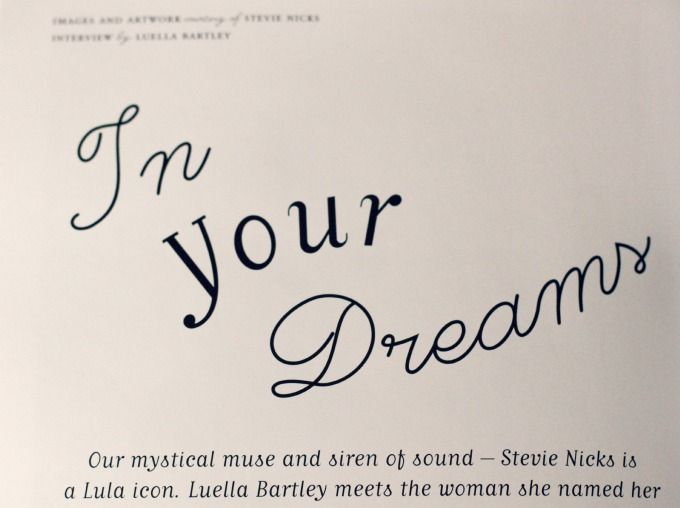 IMAGES AND ARTWORK courtesy of STEVIE NICKS
INTERVIEW by LUELLA BARTLEY
In
your
Dreams
Our mystical muse and siren of sound – Stevie Nicks is
a Lula icon. Luella Bartley meets the woman she named her